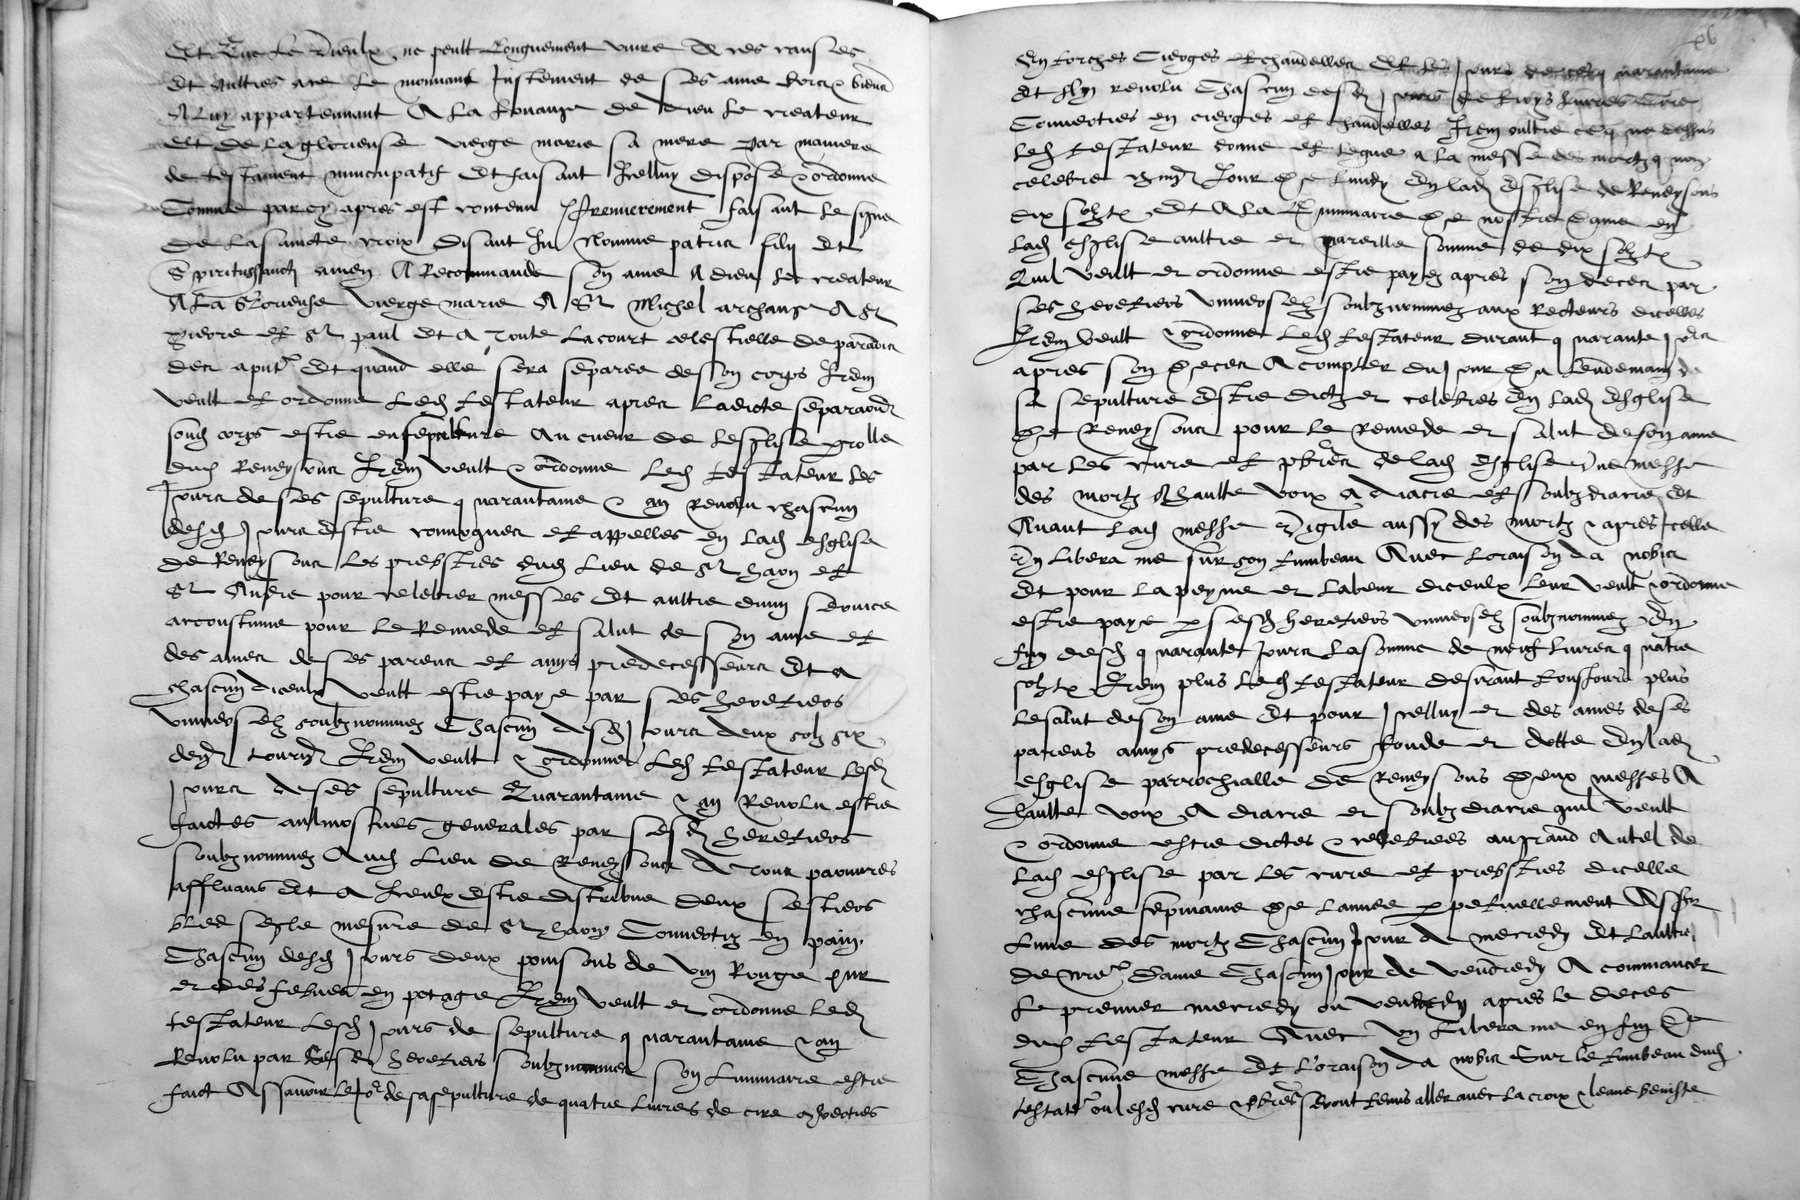 Et que le vieulx ne peult longuement vivre A ces causes
Et aultres ace le mouvant Justement de ses ame
A luy appartenant A la louange de dieu le createur
Et de la glorieuse vierge marie sa mere par maniere
de testament nuncupatif Et faisant Icelluy dispose & ordonne
Comme par cy apres est contenu Premierement faisant le signe
de la saincte croix disant In Nomine patris filii Et
Spiritussancti amen A Recommande son ame A dieu le createur
A la Glorieuse vierge marie A St Michel archange A St
pierre et St paul Et A toute la court celestielle de paradis
des aput Et quand elle sera separee de son corps Item
veult et ordonne Led testateur apres ladicte separaon
sond corps estre ensepulture Au cueur de lesglise
dud Reneysons Item veult & ordonne Led testateur les
Jours de ses sepulture quarantaine & an Revolu chascun
desd Jours Estre convoques et appelles en lad esglise
de Reneysons Les prebstres dud Lieu de St haon et
St Andre pour celebrer messes Et aultre divin service
accoustume pour le Remede et salut de son ame et
des ames de ses parens et amys predecesseurs Et a
chascun diceulx veult estre paye par ses heretiers
universelz soubznommez Chascun desd Jours deux solz six
denr tournr Item veult & ordonne Led testateur lesd
Jours de ses sepulture Quarantaine & an Revolu estre
faictes aulmosnes generales par sesd heretiers
soubznommez Aud Lieu de Reneysons A tous paouvres
affluans Et A Iceulx Estre distribue deux sestiers
bled seigle mesure de St haon Convertiz en pain
Chascun desd Jours deux poinsons de vin Rouge pur
et des febves en potage Item veult et ordonne led
testateur Lesd Jours de sepulture quarantaine & an
Revolu par sesd heretiers soubznommes son luminaire estre
faict Assavoir le Jor de sa sepulture de quatre Livres de cire converties
xv
En torches Cierges et chandelles Et les Jours de quarantaine
Et An revolu Chascun desd Jours de troys livres Cire
Converties en cierges et chandelles Item oultre ce que dessus
Led testateur donne et legue a la messe des mortz
celebre Jour de lundy En lad Esglise de Reneysons
dix solz tz Et A la luminaire de nostre Dame en
lad esglise aultre et pareille somme de dix solz tz
Quil veult et ordonne estre payez apres son deces par
ses heretiers universelz soubznommez aux Recteurs dicelles
Item veult & ordonne Led testateur durant quarante Jours
apres son Deces A compter du Jour Du lendemain de
sa sepulture Estre dictz et celebres En lad Esglise
de Reneysons pour le Remede et salut de son ame
par les cure et pbres de lad Esglise Une messe
des mortz A haulte voix a diacre et soubzdiacre Et
Avant Lad messe vigile aussy des mortz & apres Icelle
Un libera me sur son tumbeau Avec Loraison da nobis
Et pour la peyne et labeur diceulx leur veult & ordonne
estre paye par sesd heretiers universelz soubznommez En
fin desd quarante Jours La somme de neuf livres quatre
solz tz Item plus Led testateur desirant tousjours plus
le salut de son ame Et pour Icelluy et des ames de ses
parens amys predecesseurs fonde et dotte En lad
esglise parrochialle de Reneysons Deux messes A
haulte voix A diacre et soubzdiacre quil veult
& ordonne estre dictes & celebrees au grand Autel de
lad esglise par les cure et prebstres dicelle
chascune sepmaine De lannee perpetuellement Asscr
Lune des mortz Chascun Jour de mecredy Et Laultre
de nre Dame Chascun Jour de vendredy A commancer
le premier mecredy ou vendredy apres le deces
dud testateur Avec un Libera me en fin De
Chascune messe Et Loraison da nobis Sur le tumbeau dud
testatr ou lesd cure & pbres seront tenus aller avec la croix & leaue beniste